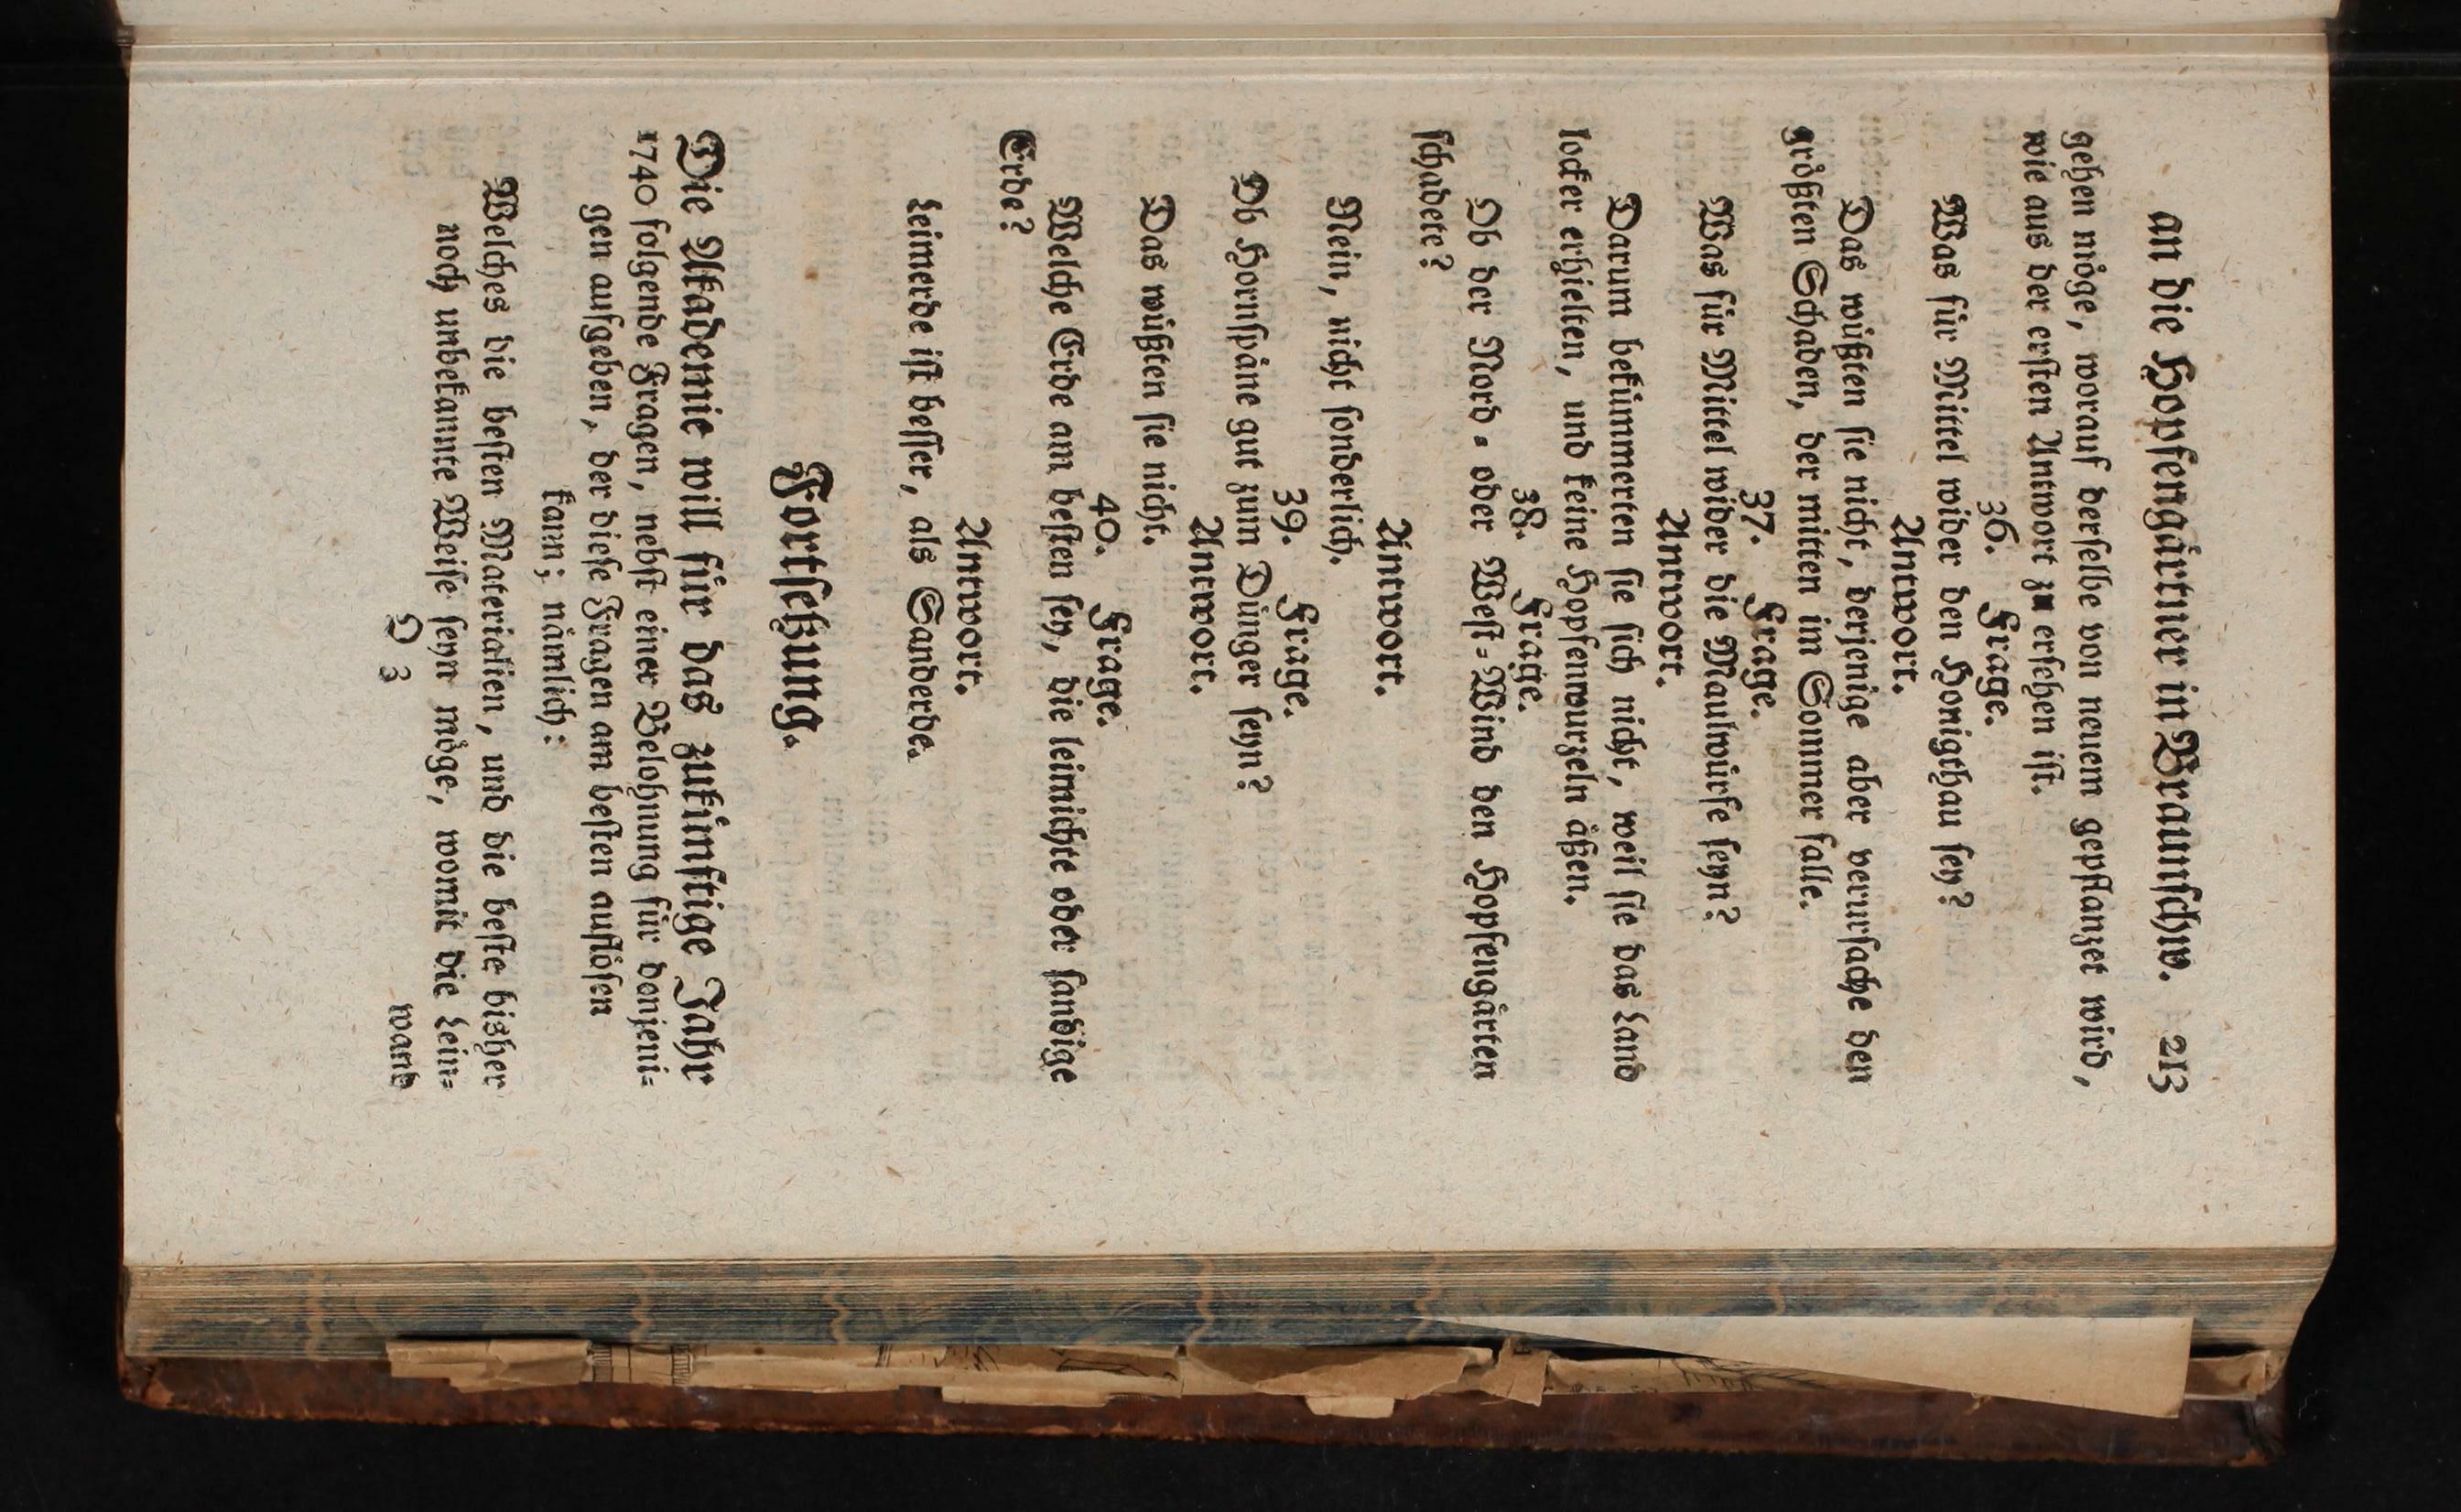 an die Hopfengärtner in Braunschw. 213
gehen möge, worauf derselbe von neuem gepflanzet wird,
wie aus der ersten Antwort zu ersehen ist.
36. Frage.
Was für Mittel wider den Honigthau sey?
Antwort.
Das wüßten sie nicht, derjenige aber verursache den
größten Schaden, der mitten im Sommer falle.
37. Frage.
Was für Mittel wider die Maulwürfe seyn?
Antwort.
Darum bekümmerten sie sich nicht, weil sie das Land
locker erhielten, und keine Hopfenwurzeln äßen.
38. Frage.
Ob der Nord- oder West-Wind den Hopfengärten
schadete?
Antwort.
Nein, nicht sonderlich.
39. Frage.
Ob Hornspäne gut zum Dünger seyn?
Antwort.
Das wüßten sie nicht.
40. Frage.
Welche Erde am besten sey, die leimichte oder sandige
Erde?
Antwort.
Leimerde ist besser, als Sanderde.
Fortsetzung.
Die Akademie will für das zukünftige Jahr
1740 folgende Fragen, nebst einer Belohnung für denjeni-
gen aufgeben, der diese Fragen am besten auflösen
kann; nämlich:
Welches die besten Materialien, und die beste bisher
noch unbekannte Weise seyn möge, womit die Lein-
O 3
wand